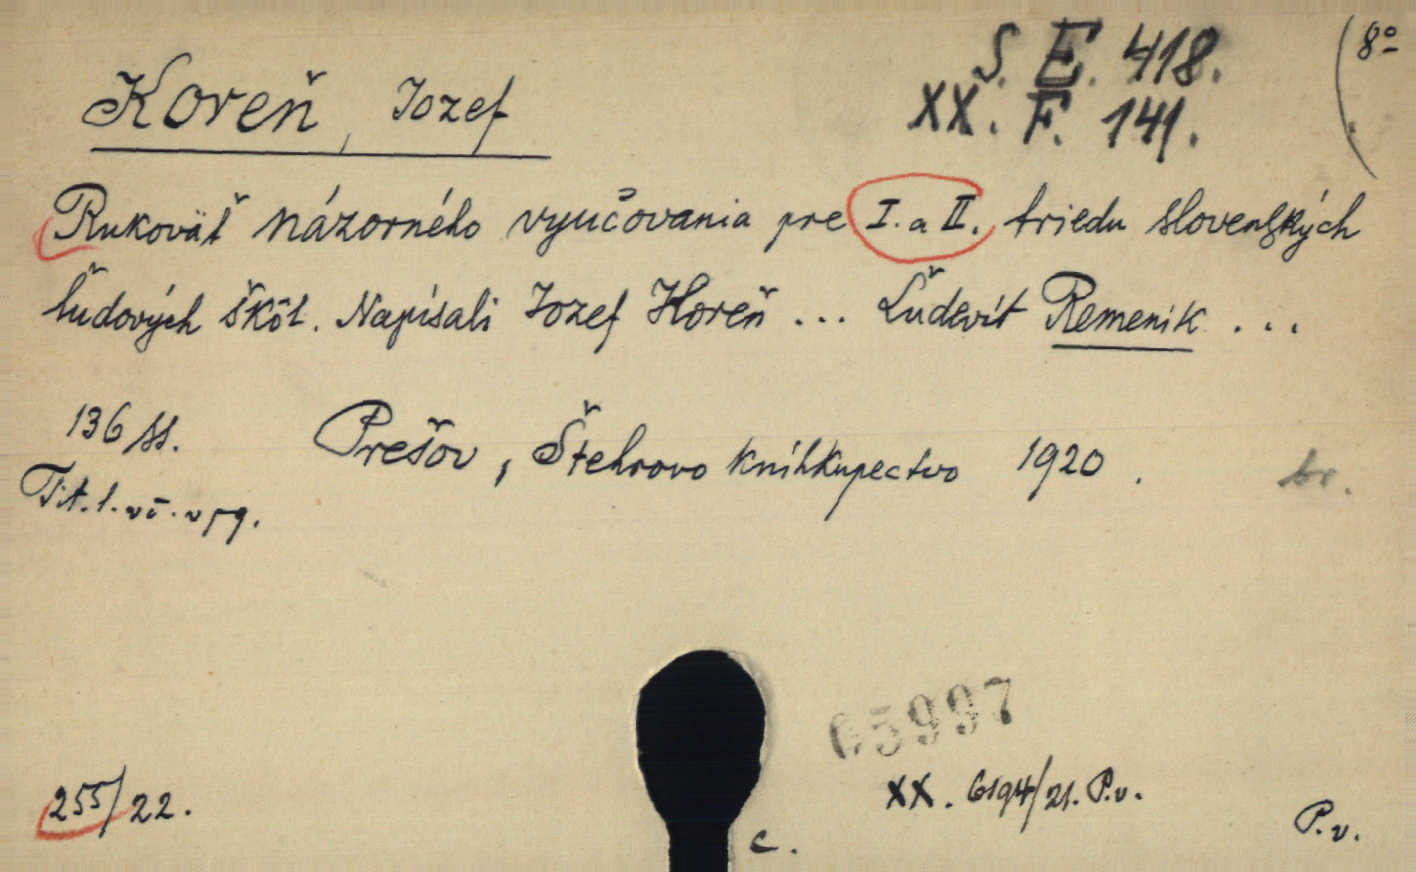 Š. E. 418.
8°
XX. F. 141.
Koreň, Jozef
Rukoväť názorného vyučovania pre I. a II. triedu slovenských
ľudových škôl. Napísali Jozef Horeň ... Ľudevít Remenik ...
136 ss.
Prešov, Štehrovo kníhkupectvo 1920.
br.
Tit. l.
65997
255/22.
XX. 6194/21. P.v.
c.
P.v.